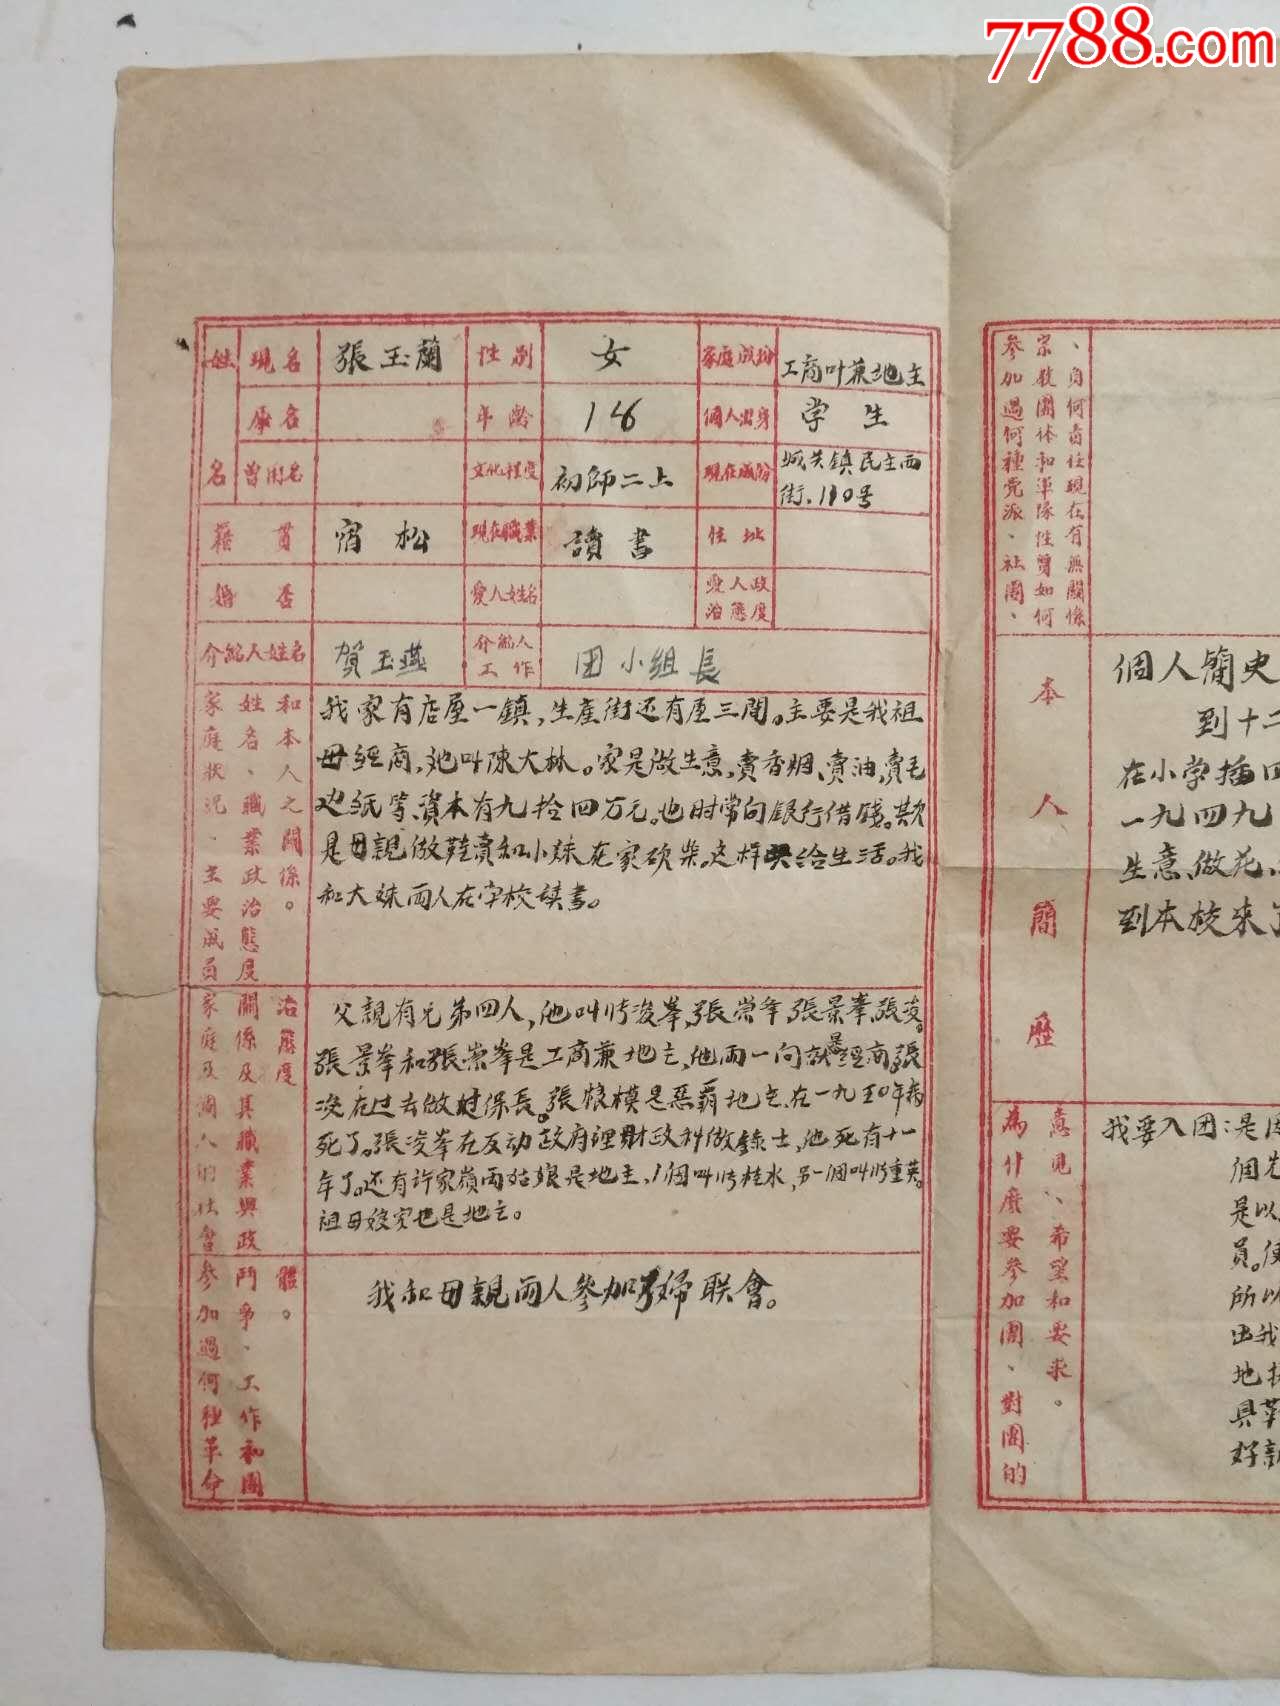 7788.com
姓名 現名 張玉蘭 性别 女 家庭成份 工商叶兼地主
原名 年齡 16 個人出身 学生
曾用名 文化程度 初師二上 現在成份 城关鎮民主西街、110号
籍貫 宿松 現在職業 讀書 住址
婚否 愛人姓名 愛人政治態度
介紹人姓名 賀玉燕 介紹人工作 团小組長
家庭狀況、主要成員
姓名、職業政治態度
和本人之關係。
我家有店屋一鎮，生產街还有屋三間。主要是我祖
母經商，她叫陳大林。家是做生意，賣香烟、賣油，賣毛
边紙等、資本有九拾四万元。也时常向銀行借錢。
是母親做鞋賣和小妹在家砍柴。这样供给生活。我
和大妹两人在学校讀書。
家庭及個人的社會
關係及其職業與政
治態度
父親有兄弟四人，他叫張浚峯，張崇峯，張景峯，張浚。
張景峯和張崇峯是工商兼地主，他两一向就是經商，張
浚在过去做过保長。張根模是惡霸地主，在一九五0年病
死了。張凌峯在反动政府裡財政科做錄士，他死有十一
年了。还有許家嶺两姑娘是地主，1個叫張桂水，另一個叫張重英。
祖母娘家也是地主。
參加過何種革命
鬥爭、工作和團
體。
我和母親两人參加了婦联會。
參加過何種党派、社團、
宗教團体和軍隊性質如何
、負何責任現在有無關係
本人簡歷
個人簡史
到十二
在小学插四
一九四九
生意、做花、
到本校来了
為什麼要參加團、對團的
意見、希望和要求。
我要入团：是因
個先
是以
員。使
所以
出我
地
具革
好